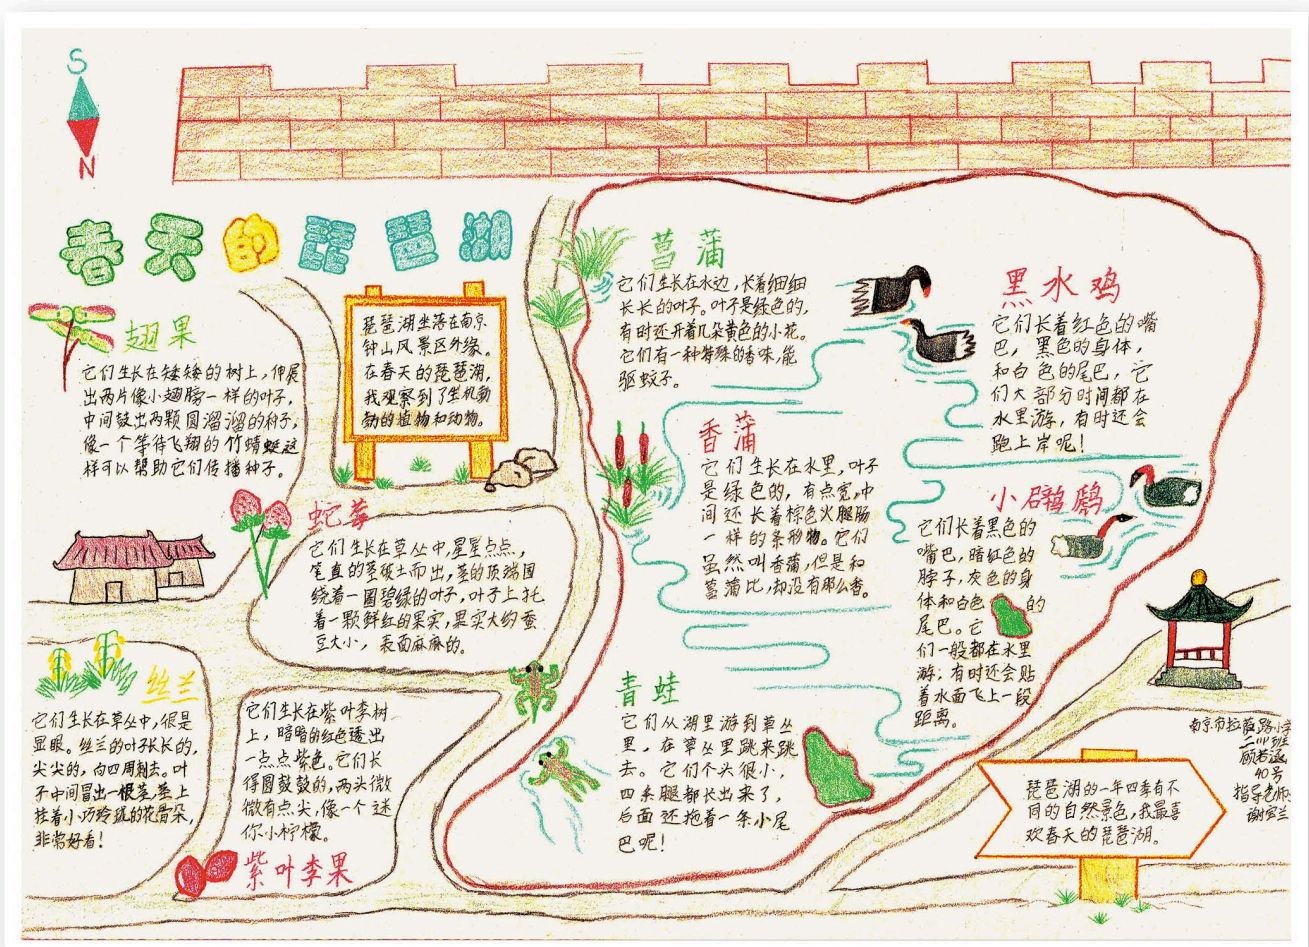 S
N
春天的琵琶湖
翅果
它们生长在矮矮的树上，伸展
出两片像小翅膀一样的叶子，
中间鼓出两颗圆溜溜的种子，
像一个等待飞翔的竹蜻蜓这
样可以帮助它们传播种子。
琵琶湖坐落在南京
钟山风景区外缘。
在春天的琵琶湖，
我观察到了生机勃
勃的植物和动物。
蛇莓
它们生长在草丛中，星星点点，
笔直的茎破土而出，茎的顶端围
绕着一圈碧绿的叶子，叶子上托
着一颗鲜红的果实，果实大约蚕
豆大小，表面麻麻的。
丝兰
它们生长在草丛中，很是
显眼。丝兰的叶子长长的，
尖尖的，向四周刺去。叶
子中间冒出一根茎，茎上
挂着小巧玲珑的花骨朵，
非常好看！
它们生长在紫叶李树
上，暗暗的红色透出
一点点紫色。它们长
得圆鼓鼓的，两头微
微有点尖，像一个迷
你小柠檬。
紫叶李果
菖蒲
它们生长在水边，长着细细
长长的叶子。叶子是绿色的，
有时还开着几朵黄色的小花。
它们有一种特殊的香味，能
驱蚊子。
香蒲
它们生长在水里，叶子
是绿色的，有点宽，中
间还长着棕色火腿肠
一样的条形物。它们
虽然叫香蒲，但是和
菖蒲比，却没有那么香。
青蛙
它们从湖里游到草丛
里，在草丛里跳来跳
去。它们个头很小，
四条腿都长出来了，
后面还拖着一条小尾
巴呢！
黑水鸡
它们长着红色的嘴
巴，黑色的身体，
和白色的尾巴，它
们大部分时间都在
水里游，有时还会
跑上岸呢！
小䴙䴘
它们长着黑色的
嘴巴，暗红色的
脖子，灰色的身
体和白色的
尾巴。它
们一般都在水里
游；有时还会贴
着水面飞上一段
距离。
南京市拉萨路小学
二(11)班
顾若涵
40号
指导老师：
谢宏兰
琵琶湖的一年四季有不
同的自然景色，我最喜
欢春天的琵琶湖。